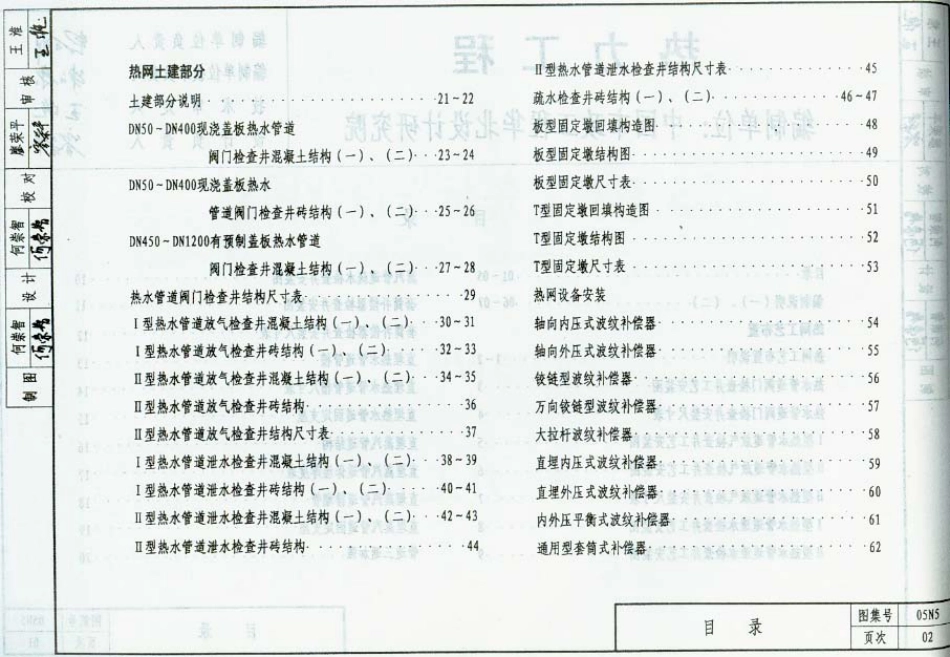 热网土建部分
土建部分说明 21~22
DN50~DN400现浇盖板热水管道
阀门检查井混凝土结构(一)、(二) 23~24
DN50~DN400现浇盖板热水
管道阀门检查井砖结构(一)、(二) 25~26
DN450~DN1200有预制盖板热水管道
阀门检查井混凝土结构(一)、(二) 27~28
热水管道阀门检查井结构尺寸表 29
Ⅰ型热水管道放气检查井混凝土结构(一)、(二) 30~31
Ⅰ型热水管道放气检查井砖结构(一)、(二) 32~33
Ⅱ型热水管道放气检查井混凝土结构(一)、(二) 34~35
Ⅱ型热水管道放气检查井砖结构 36
Ⅱ型热水管道放气检查井结构尺寸表 37
Ⅰ型热水管道泄水检查井混凝土结构(一)、(二) 38~39
Ⅰ型热水管道泄水检查井砖结构(一)、(二) 40~41
Ⅱ型热水管道泄水检查井混凝土结构(一)、(二) 42~43
Ⅱ型热水管道泄水检查井砖结构 44
Ⅱ型热水管道泄水检查井结构尺寸表 45
疏水检查井砖结构(一)、(二) 46~47
板型固定墩回填构造图 48
板型固定墩结构图 49
板型固定墩尺寸表 50
T型固定墩回填构造图 51
T型固定墩结构图 52
T型固定墩尺寸表 53
热网设备安装
轴向内压式波纹补偿器 54
轴向外压式波纹补偿器 55
铰链型波纹补偿器 56
万向铰链型波纹补偿器 57
大拉杆波纹补偿器 58
直埋内压式波纹补偿器 59
直埋外压式波纹补偿器 60
内外压平衡式波纹补偿器 61
通用型套筒式补偿器 62
目 录
图集号 05N5
页次 02
制图 何崇智
设计 何崇智
校对 廖荣平
审核 王淮